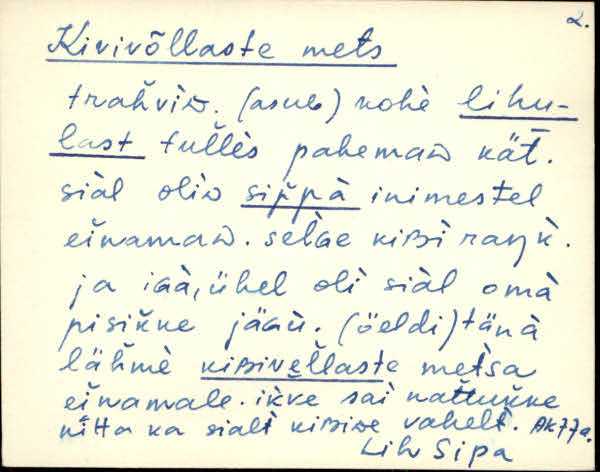 2.
Kivivõllaste mets
trahviw. (asub) kohè lihu-
last tullès pahemaw kät.
siàl oliw sippà inimestel
einamaw. selge kißi raŋk.
ja iàà, ühel oli siàl omà
pisikke jään. (öeldi) tänà
lähmè kißivellaste metsa
einamale. ikve sai nattukke
nitta ka sialt kißiwe vahelt. AK77a.
Lih Sipa